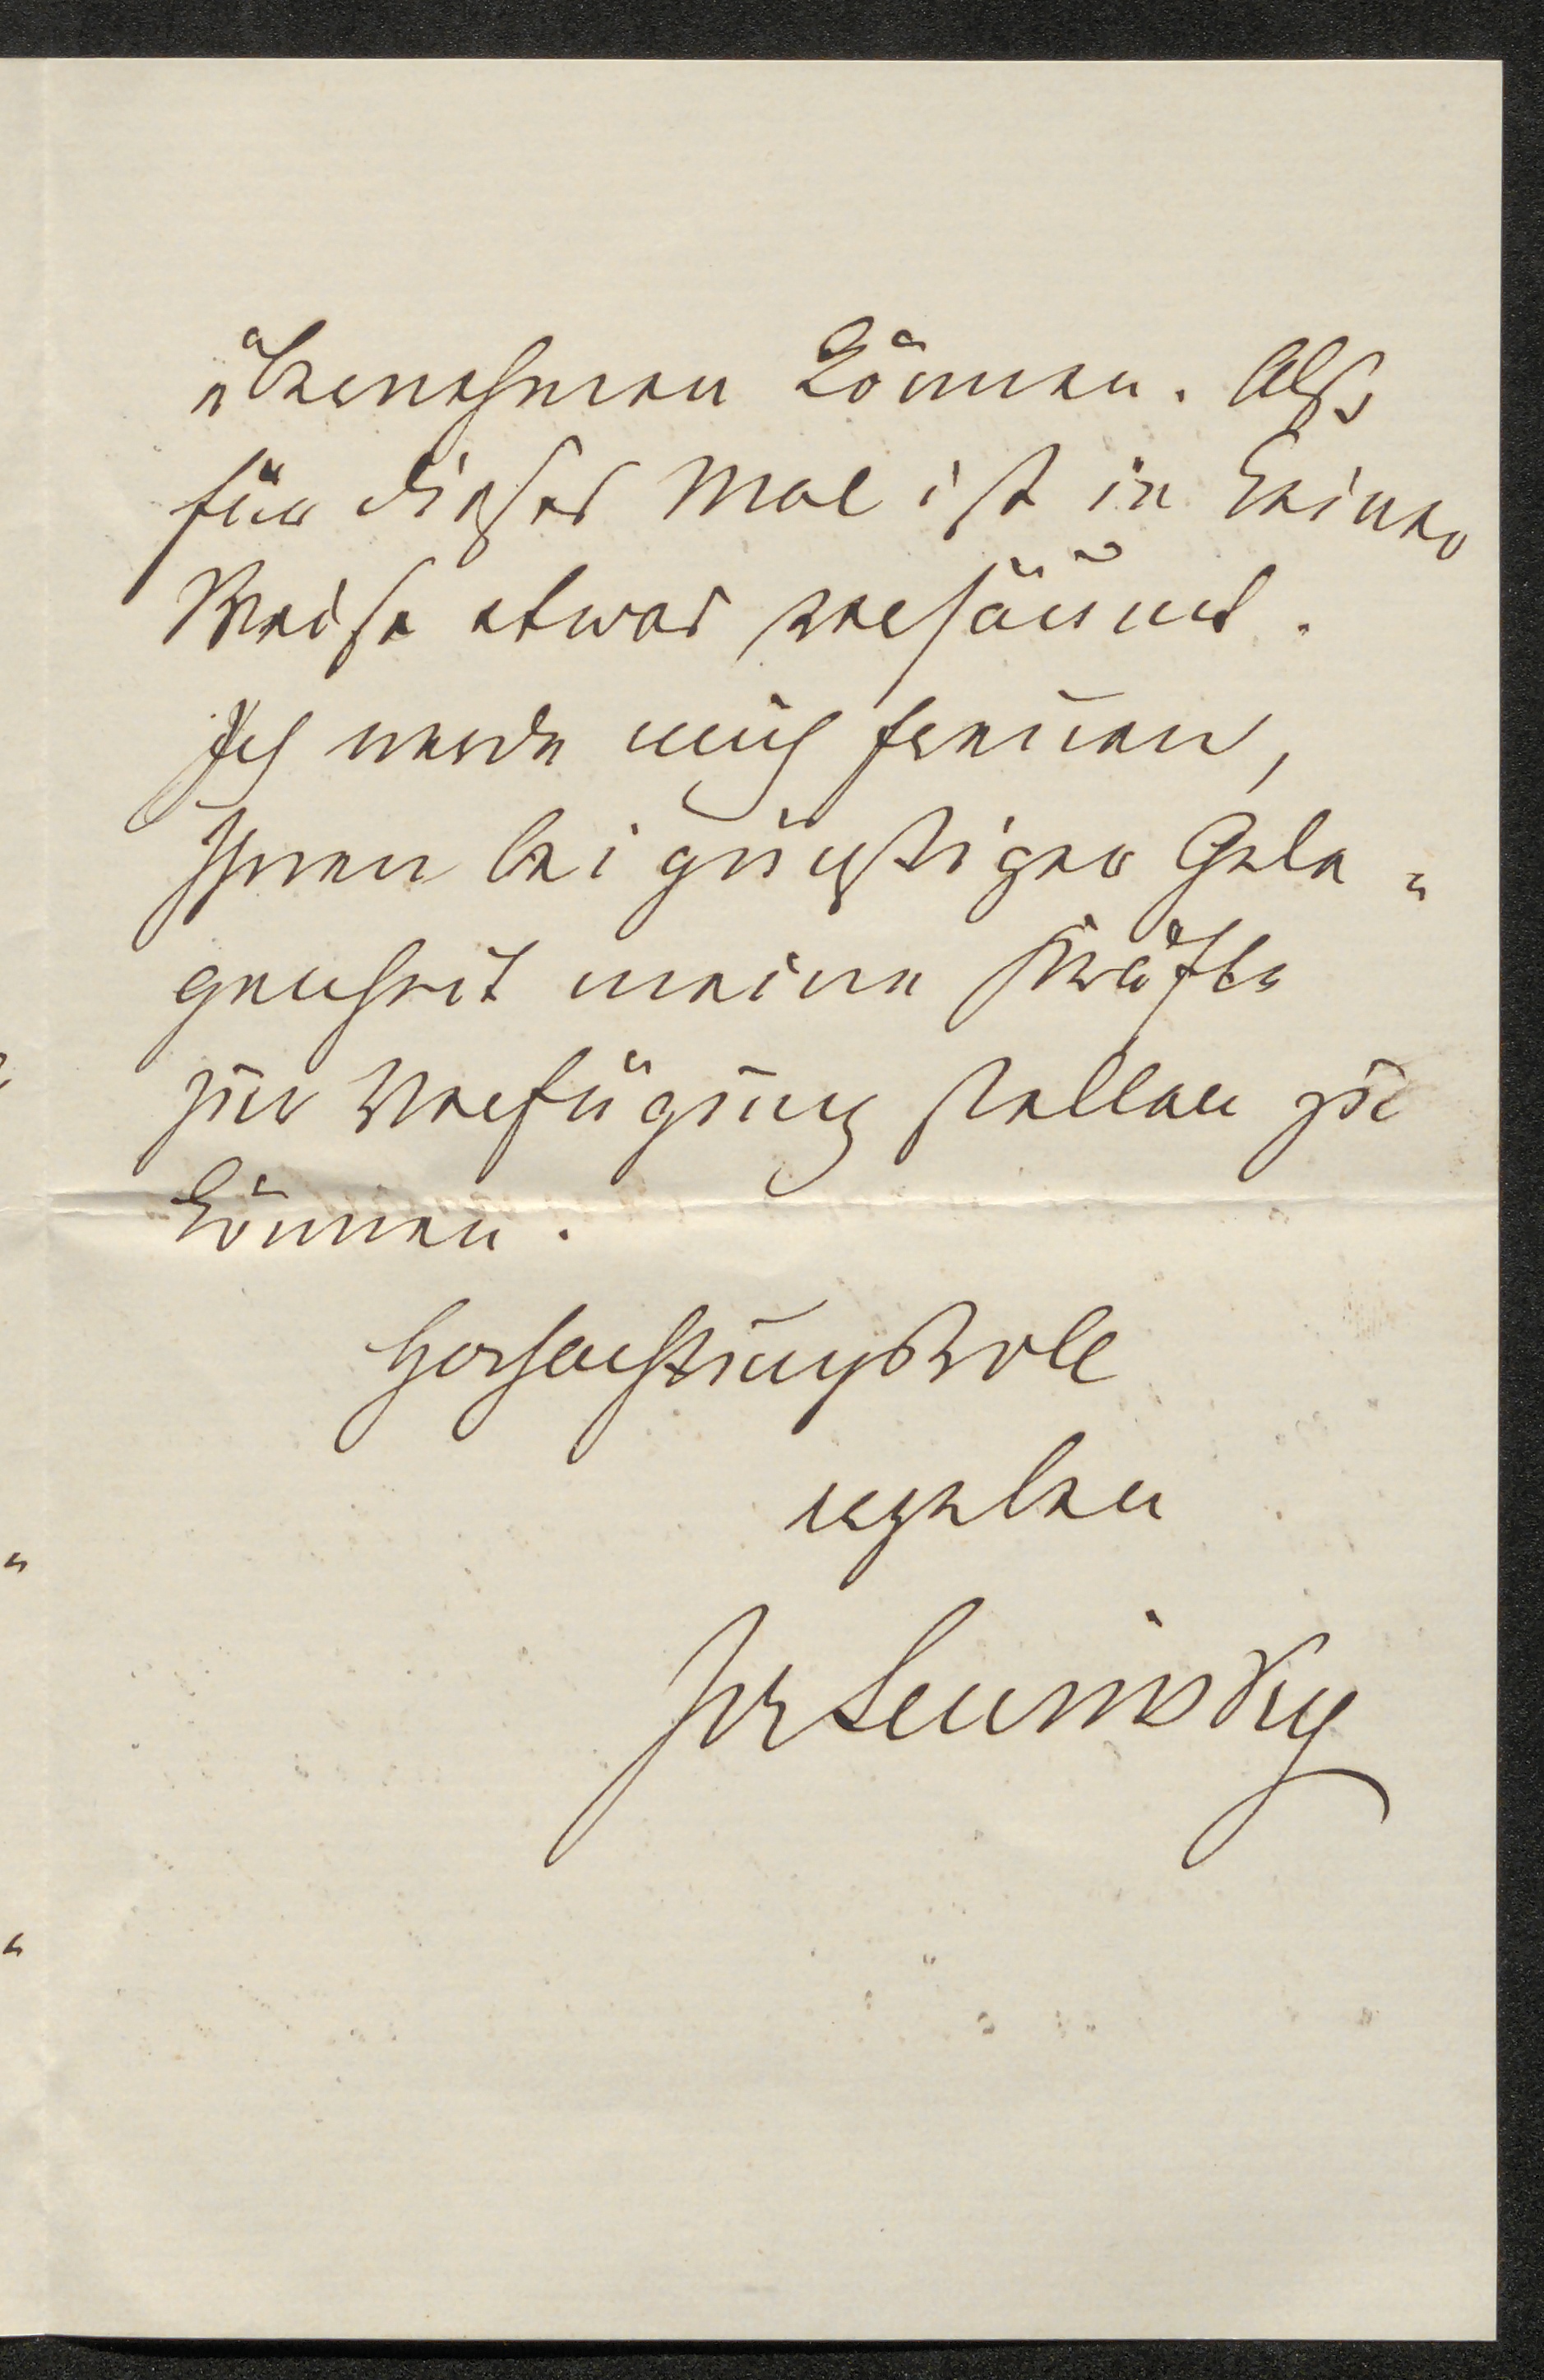 übernehmen können. Also
für dieses Mal ist in keiner
Weise etwas versäumt.
Ich werde mich freuen,
Ihnen bei günstiger Gele=
genheit meine Kräfte
zur Verfügung stellen zu
können.
Hochachtungsvoll
ergeben
JosLewinsky